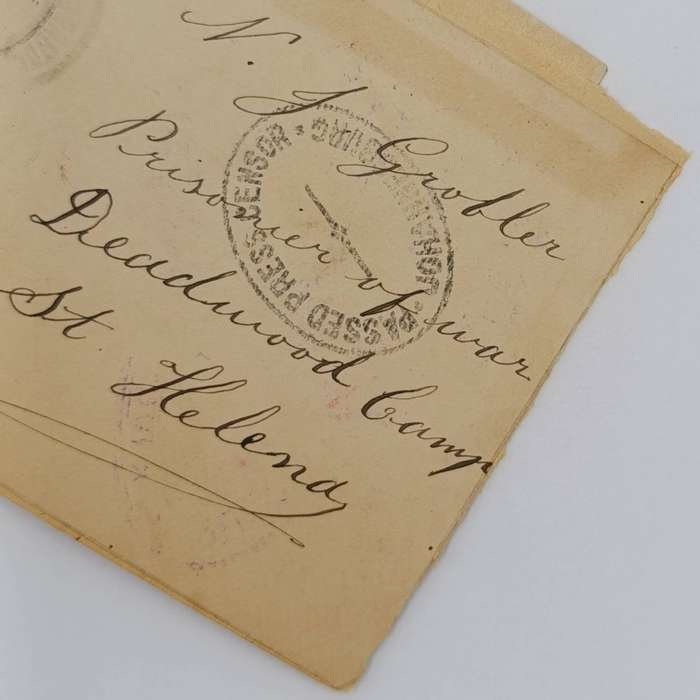 N. J Grobler
Prisonier of war
Deadwood Camp
St. Helena
PASSED PRESS CENSOR
JOHANNESBURG